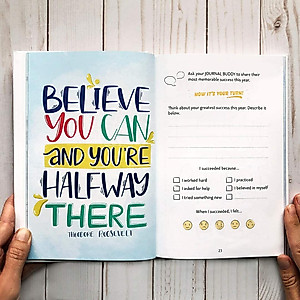 BELIEVE
YOU CAN
AND YOU'RE
HALFWAY
THERE
THEODORE ROOSEVELT
Ask your JOURNAL BUDDY to share their
most memorable success this year.
NOW IT'S YOUR TURN!
Think about your greatest success this year. Describe it
below.
I succeeded because...
I worked hard
I practiced
I asked for help
I believed in myself
I tried something new
When I succeeded, I felt...
23